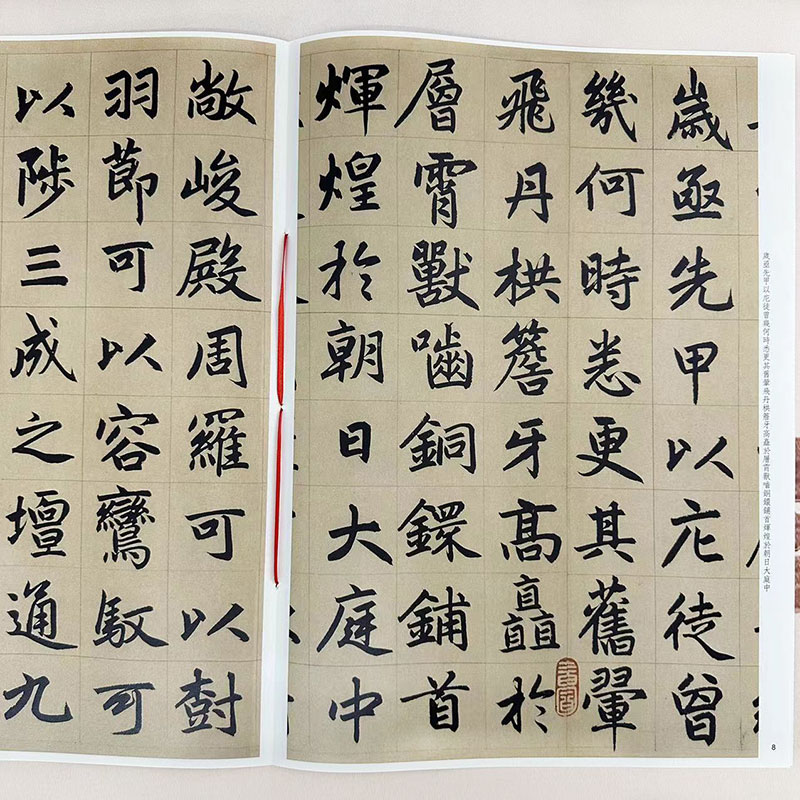 歲亟先甲以庀徒曾
幾何時悉更其舊翬
飛丹栱簷牙高矗於
層霄獸嚙銅鐶鋪首
煇煌於朝日大庭中
敞峻殿周羅可以樹
羽節可以容鸞馭可
以陟三成之壇通九
歲亟先甲以庀徒曾幾何時悉更其舊翬飛丹栱簷牙高矗於層霄獸嚙銅鐶鋪首煇煌於朝日大庭中
8